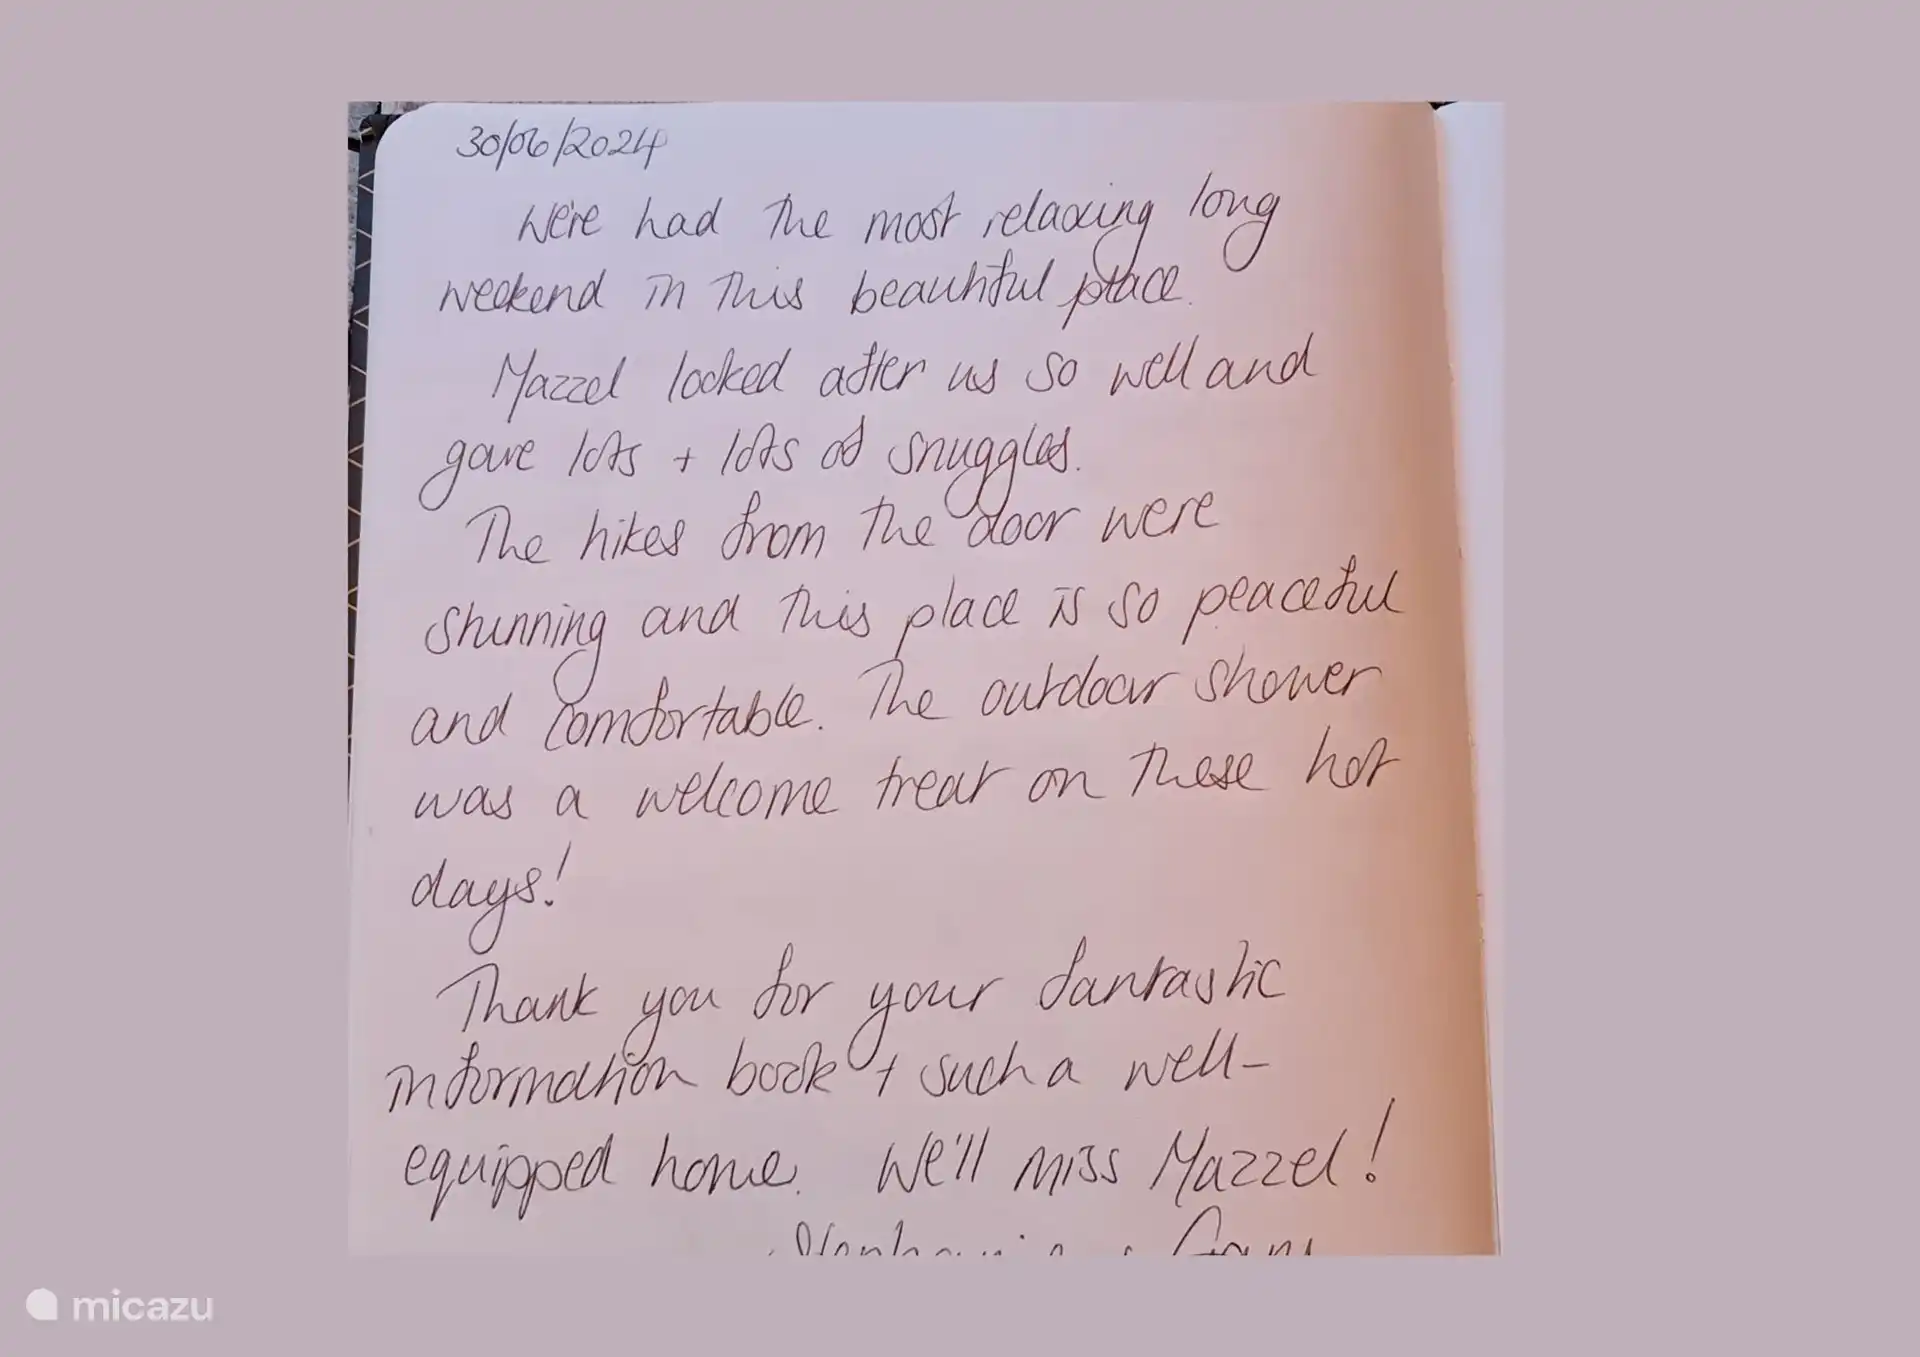 30/06/2024
We're had the most relaxing long
weekend in this beautiful place.
Mazzel looked after us so well and
gave lots + lots of snuggles.
The hikes from the door were
stunning and this place is so peaceful
and comfortable. The outdoor shower
was a welcome treat on these hot
days!
Thank you for your fantastic
information book + such a well-
equipped home. We'll miss Mazzel!
micazu